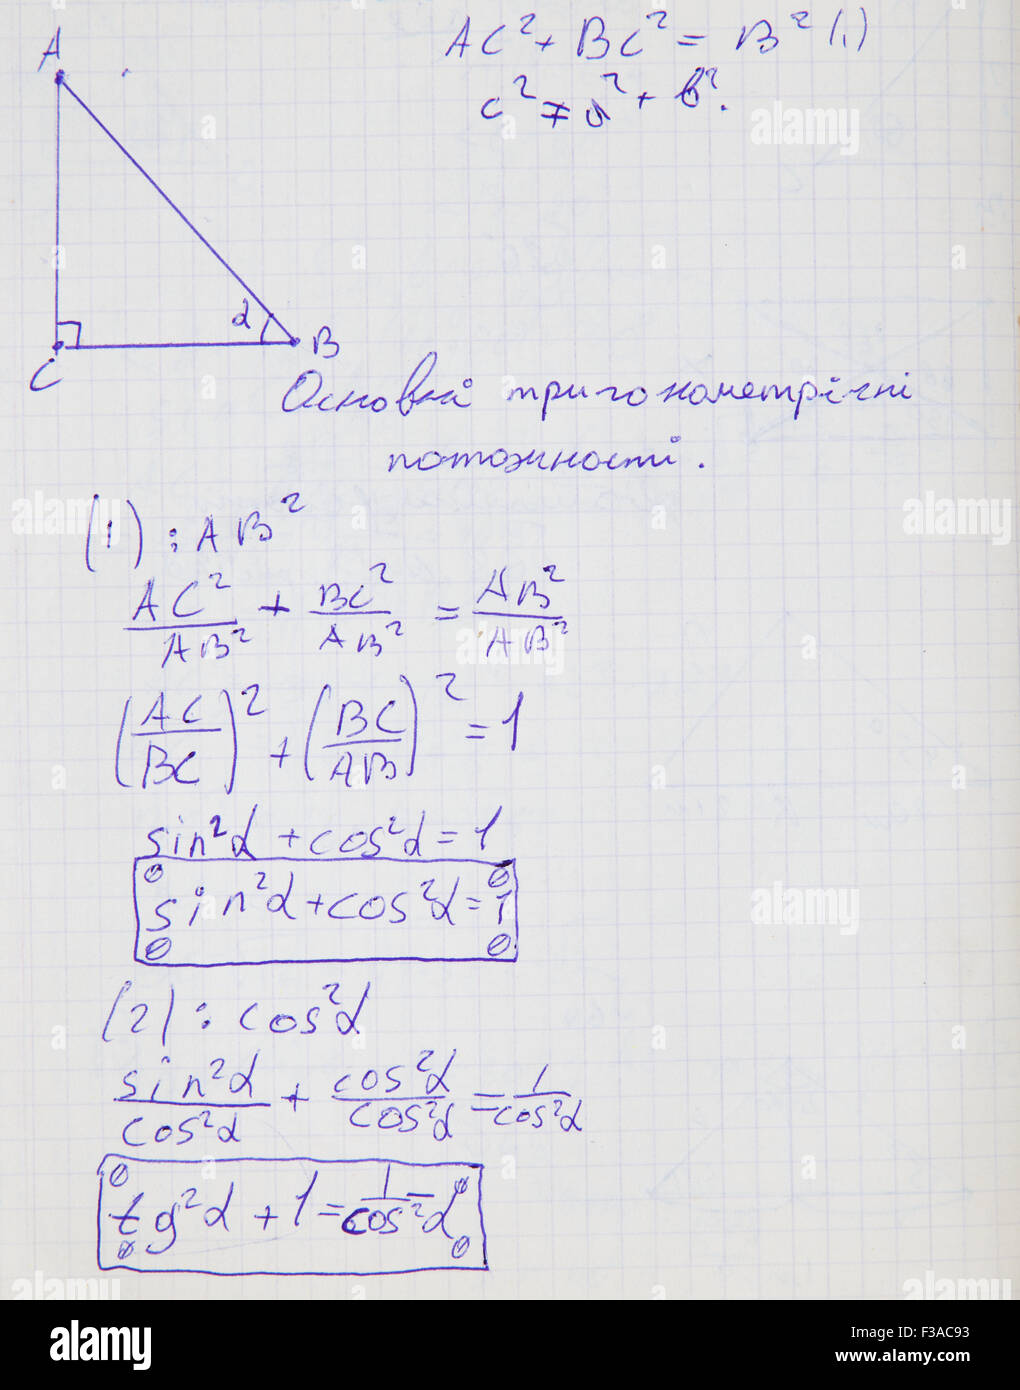 A
AC² + BC² = B² (1)
c² = a² + b².
α
C
B
Основні тригонометрічні
тотожності.
(1) : AB²
AC²/AB² + BC²/AB² = AB²/AB²
(AC/BC)² + (BC/AB)² = 1
sin²α + cos²α = 1
sin²α + cos²α = 1
(2) : cos²α
sin²α/cos²α + cos²α/cos²α = 1/cos²α
tg²α + 1 = 1/cos²α
alamy
Image ID: F3AC93
www.alamy.com